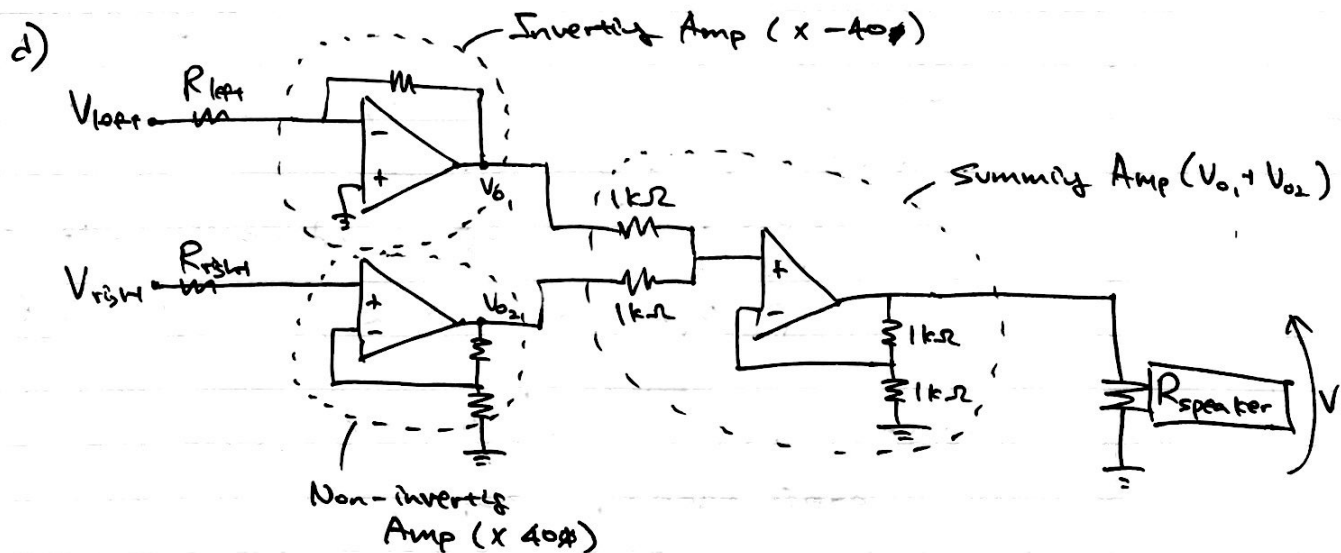 d)
Inverting Amp ( x -40)
V left
R left
-
+
Vo1
1kΩ
Summing Amp (Vo1 + Vo2)
V right
R right
+
-
Vo2
1kΩ
+
-
1kΩ
1kΩ
R speaker
V
Non-inverting
Amp ( x 40)